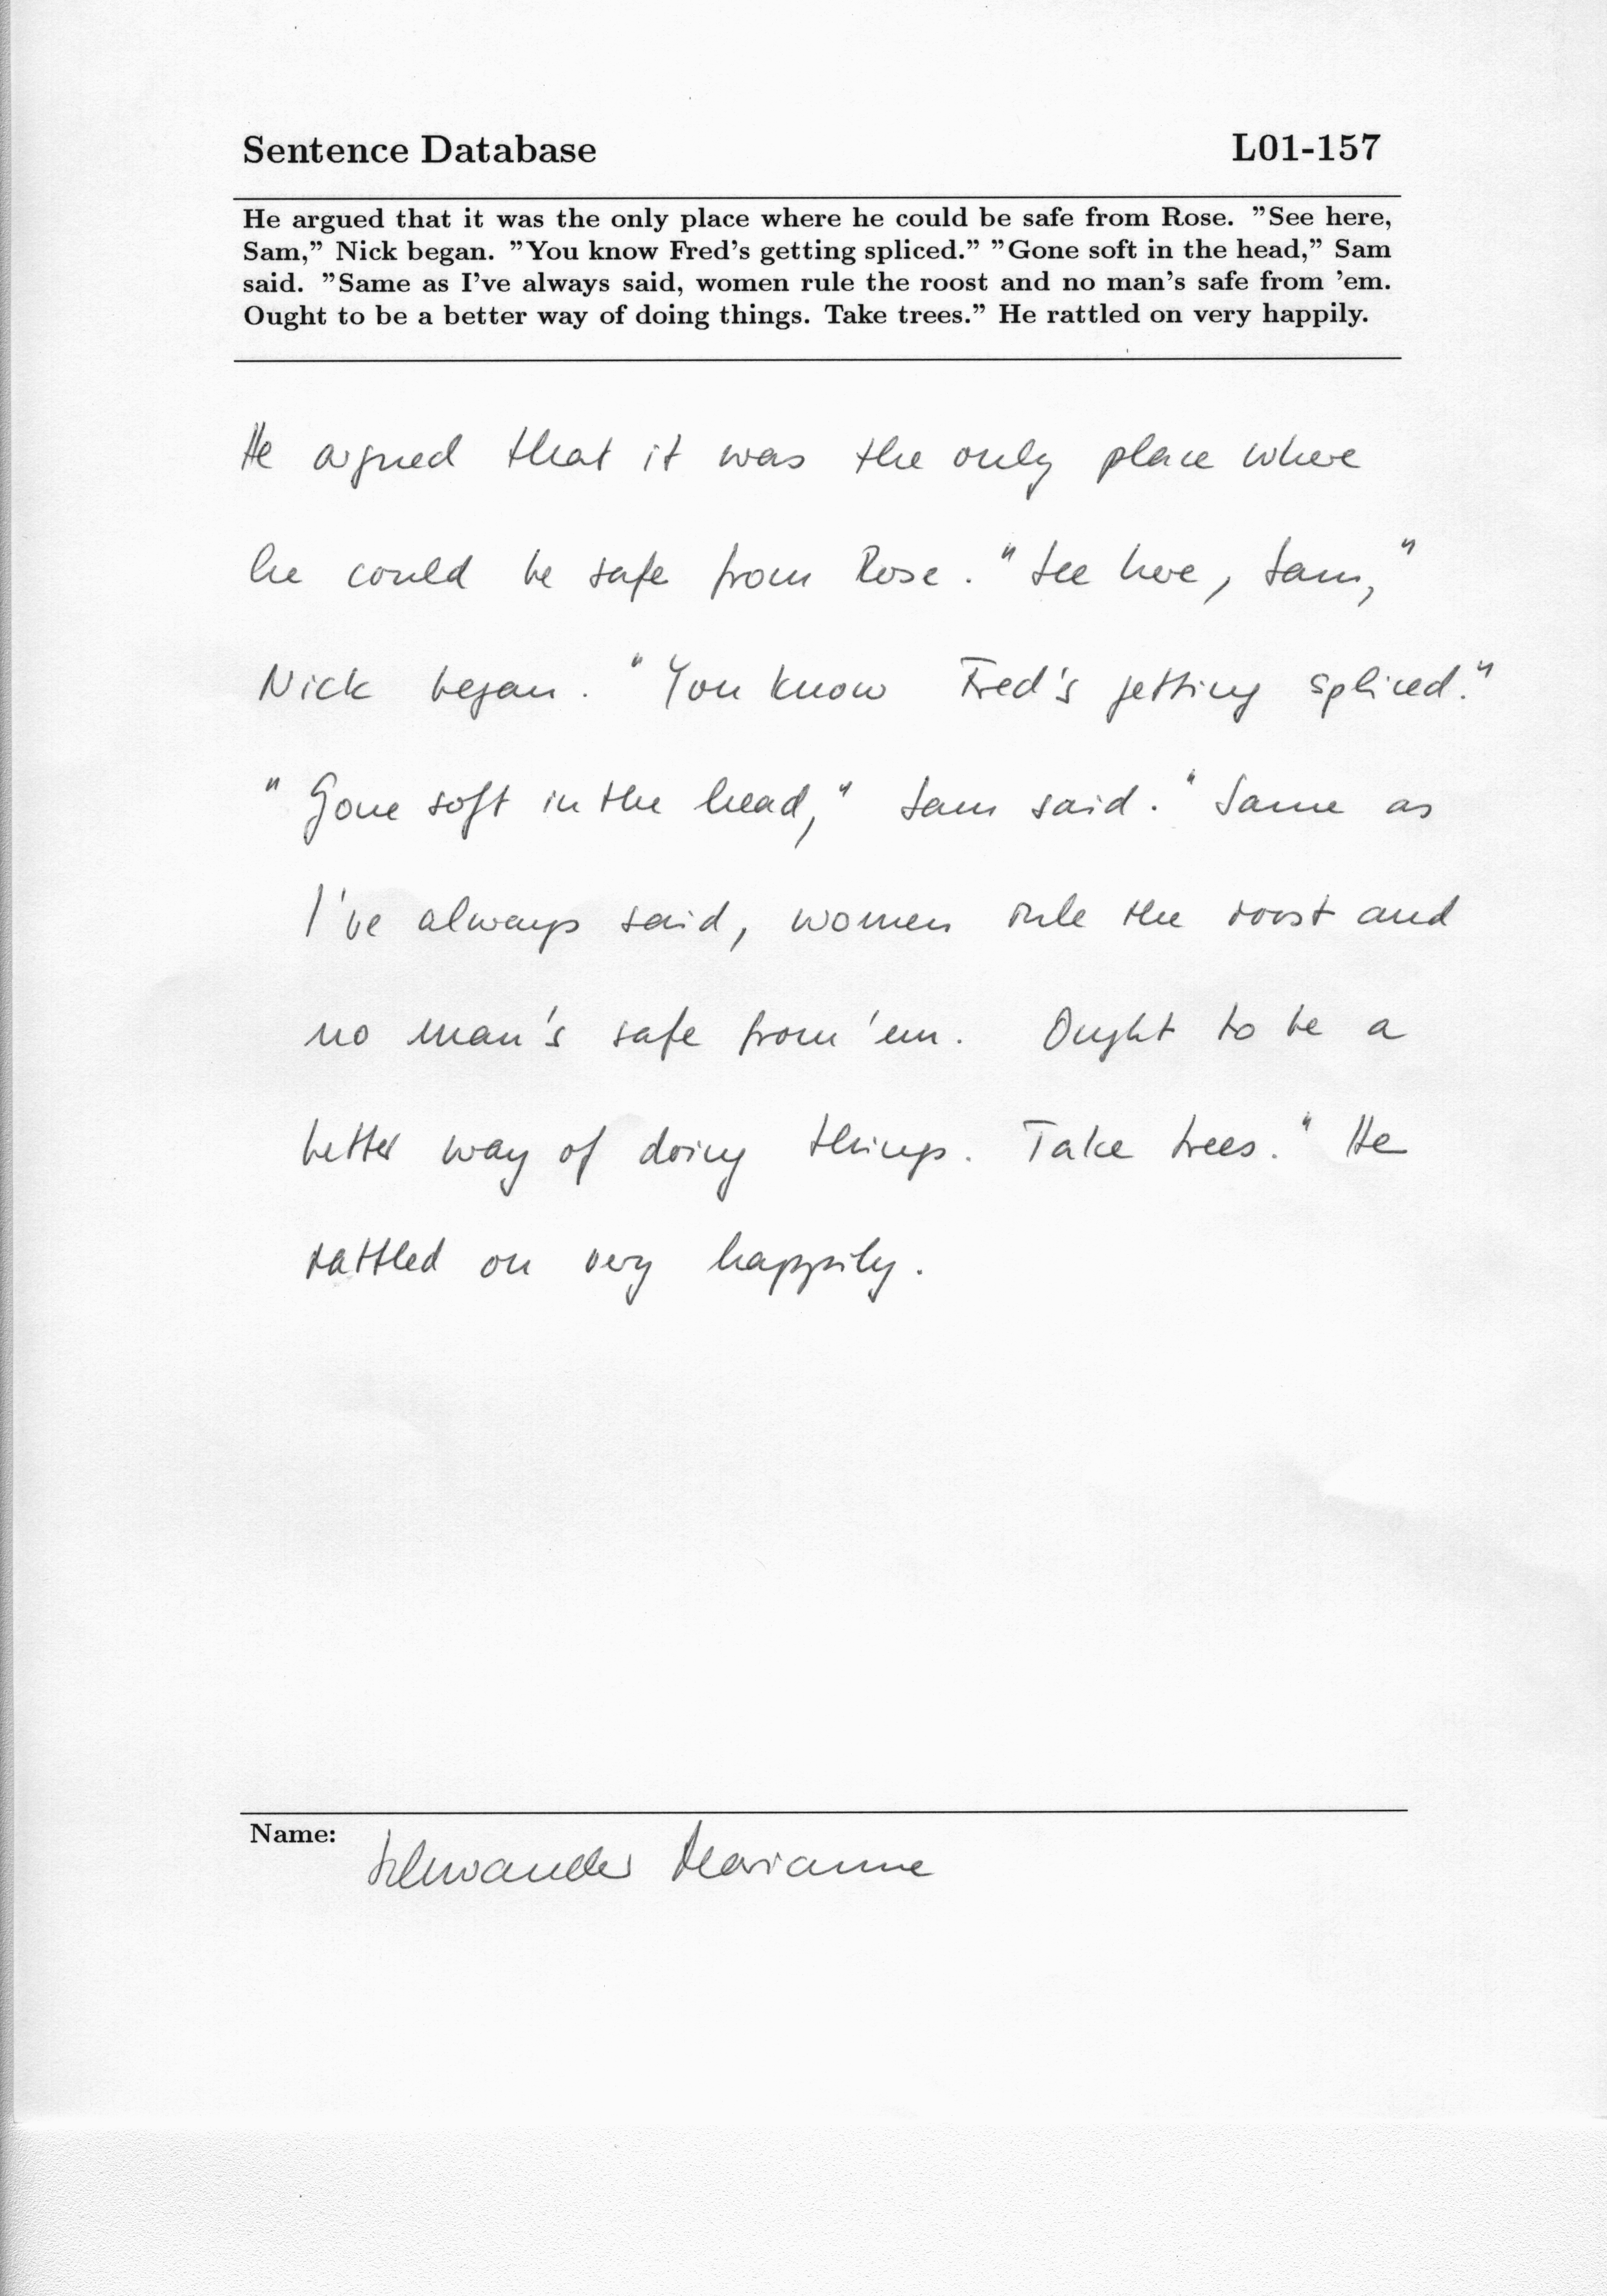 Sentence Database L01-157
He argued that it was the only place where he could be safe from Rose. "See here,
Sam," Nick began. "You know Fred's getting spliced." "Gone soft in the head," Sam
said. "Same as I've always said, women rule the roost and no man's safe from 'em.
Ought to be a better way of doing things. Take trees." He rattled on very happily.
He argued that it was the only place where
he could be safe from Rose. "See here, Sam,"
Nick began. "You know Fred's getting spliced."
"Gone soft in the head," Sam said. "Same as
I've always said, women rule the roost and
no man's safe from 'em. Ought to be a
better way of doing things. Take trees." He
rattled on very happily.
Name: Schwander Marianne